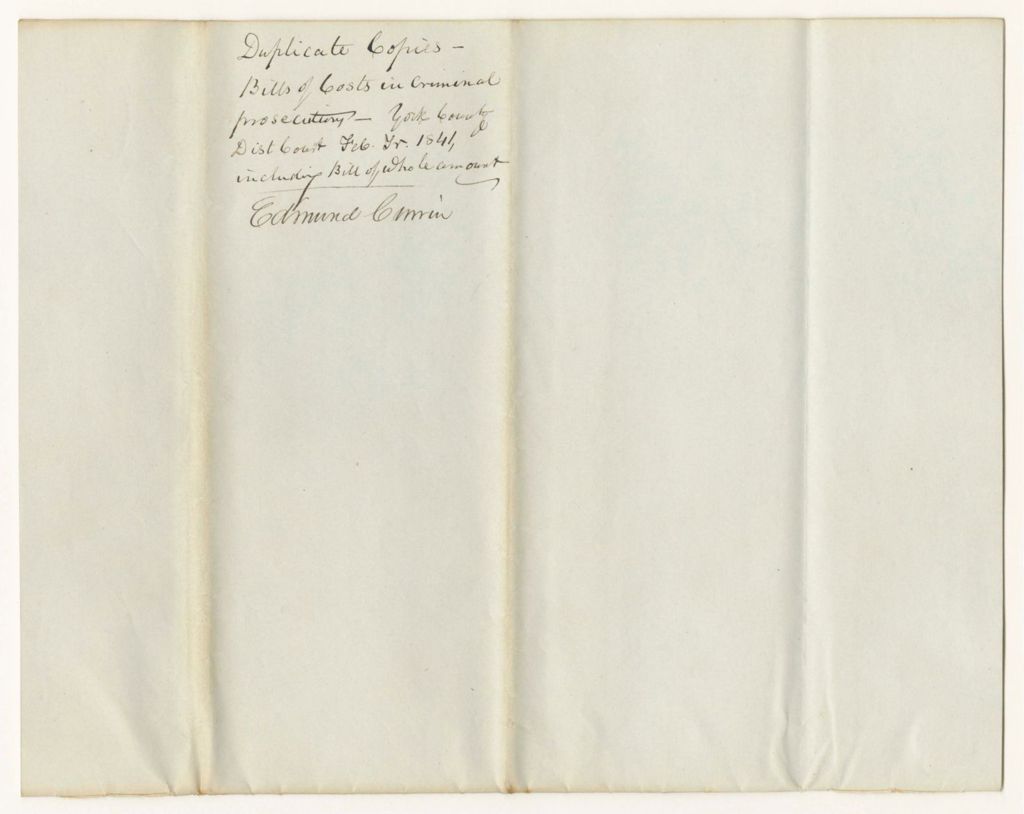 Duplicate Copies –
Bills of Costs in criminal
prosecutions – York County
Dist Court Feb. Tr. 1841,
including Bill of whole amount
Edmund Currin